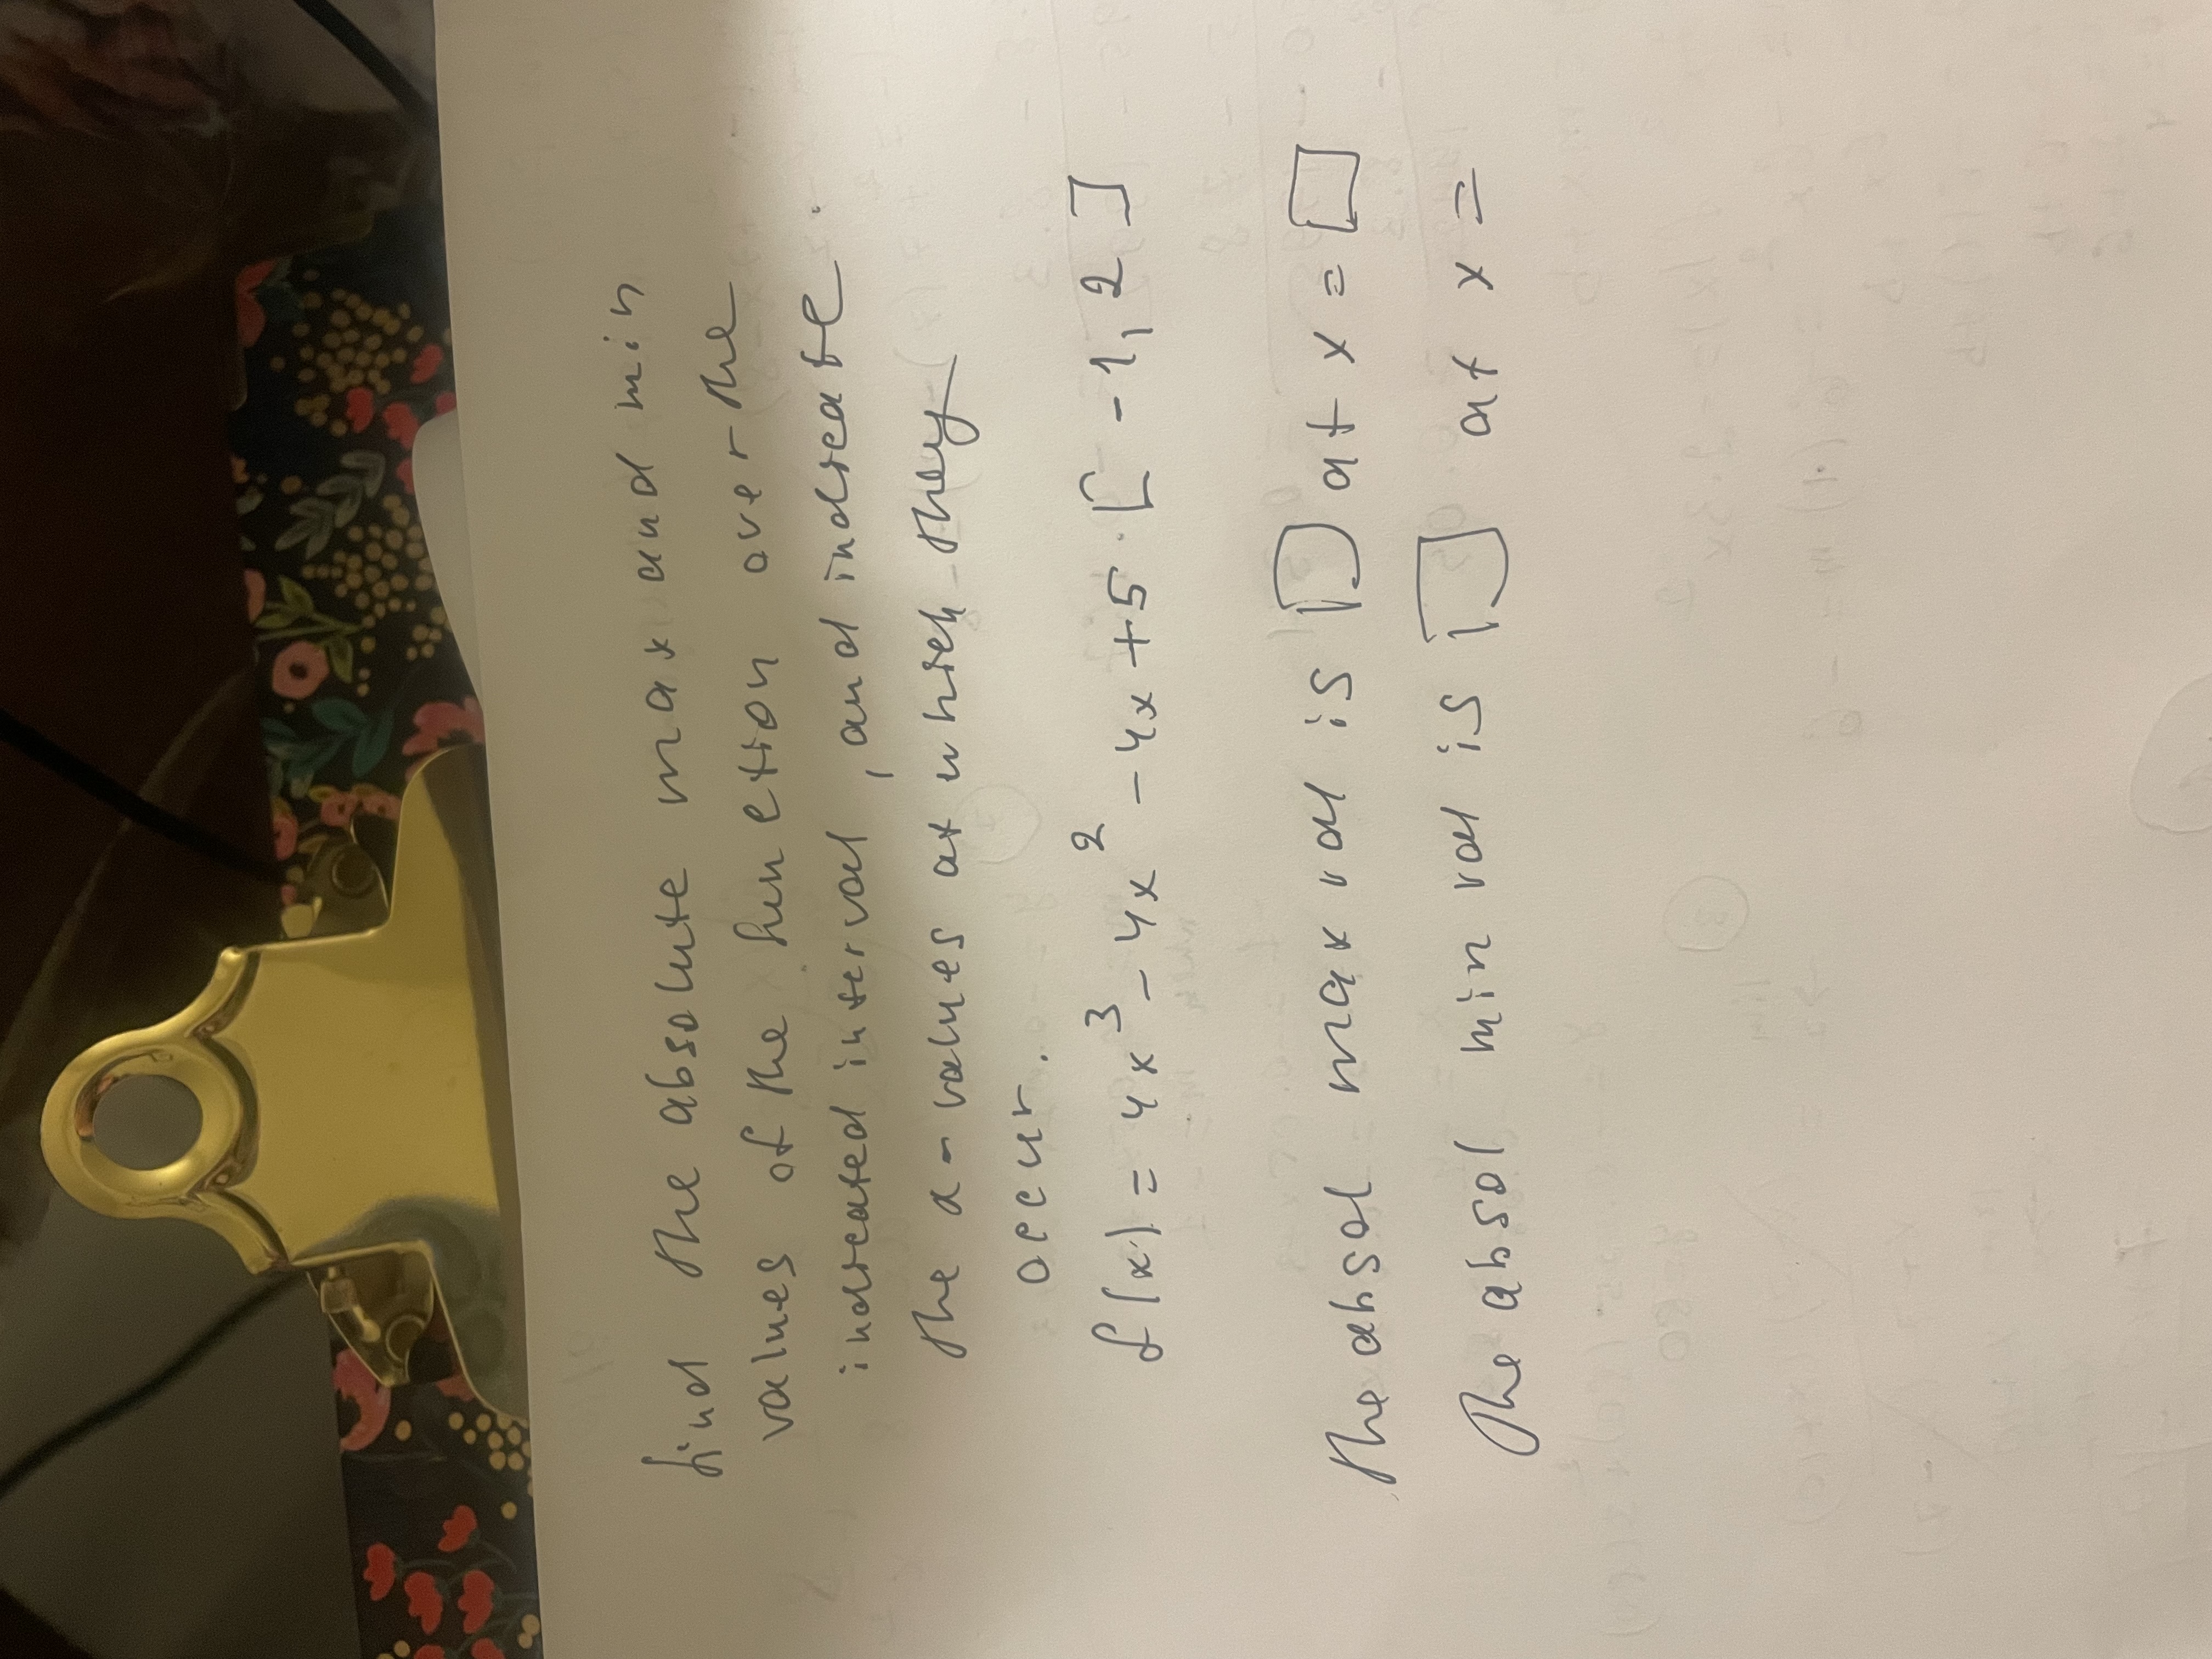 find the absolute max and min
values of the function over the
indicated interval, and indicate
the x-values at which they
occur.
f(x) = 4x³ - 4x² - 4x + 5 · [ -1, 2 ]
The absol max val is □ at x = □
The absol min val is □ at x =